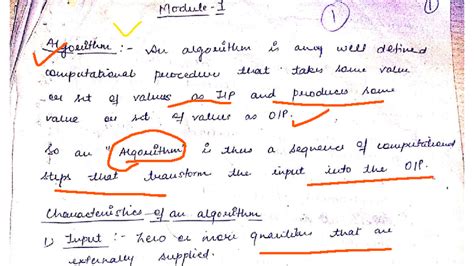 Module-1
1
Algorithm :- An algorithm is any well defined
computational procedure that takes some value
or set of values as I/P and produces some
value or set of values as O/P.
So an "Algorithm" is thus a sequence of computational
steps that transform the input into the O/P.
Characteristics of an algorithm
1) Input :- Zero or more quantities that are
externally supplied.